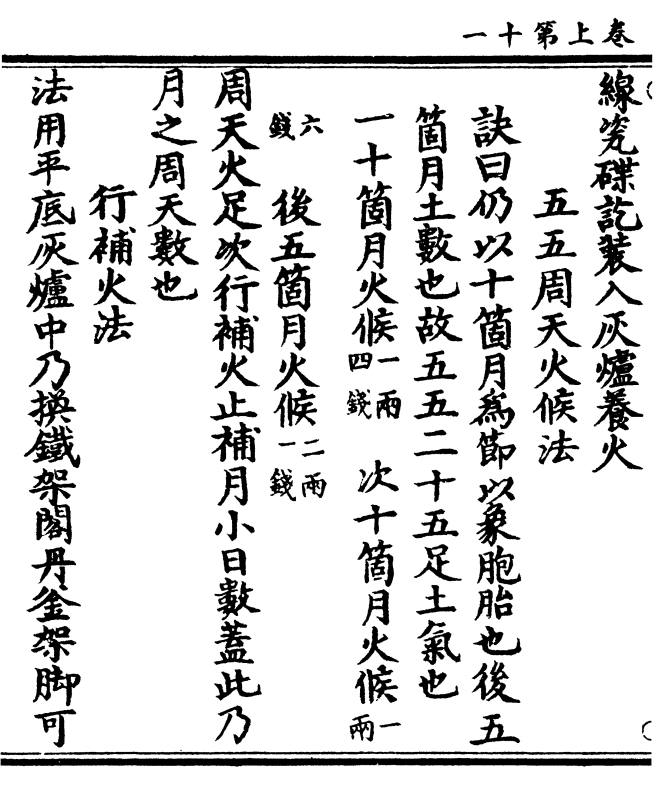 卷上第十一
線瓷碟訖裝入灰爐養火
五五周天火候法
訣曰仍以十箇月爲節以象胞胎也後五
箇月土數也故五五二十五足土氣也
一十箇月火候一兩四錢 次十箇月火候一兩
六錢 後五箇月火候二兩一錢
周天火足次行補火止補月小日數蓋此乃
月之周天數也
行補火法
法用平底灰爐中乃換鐵架閣丹釜架脚可